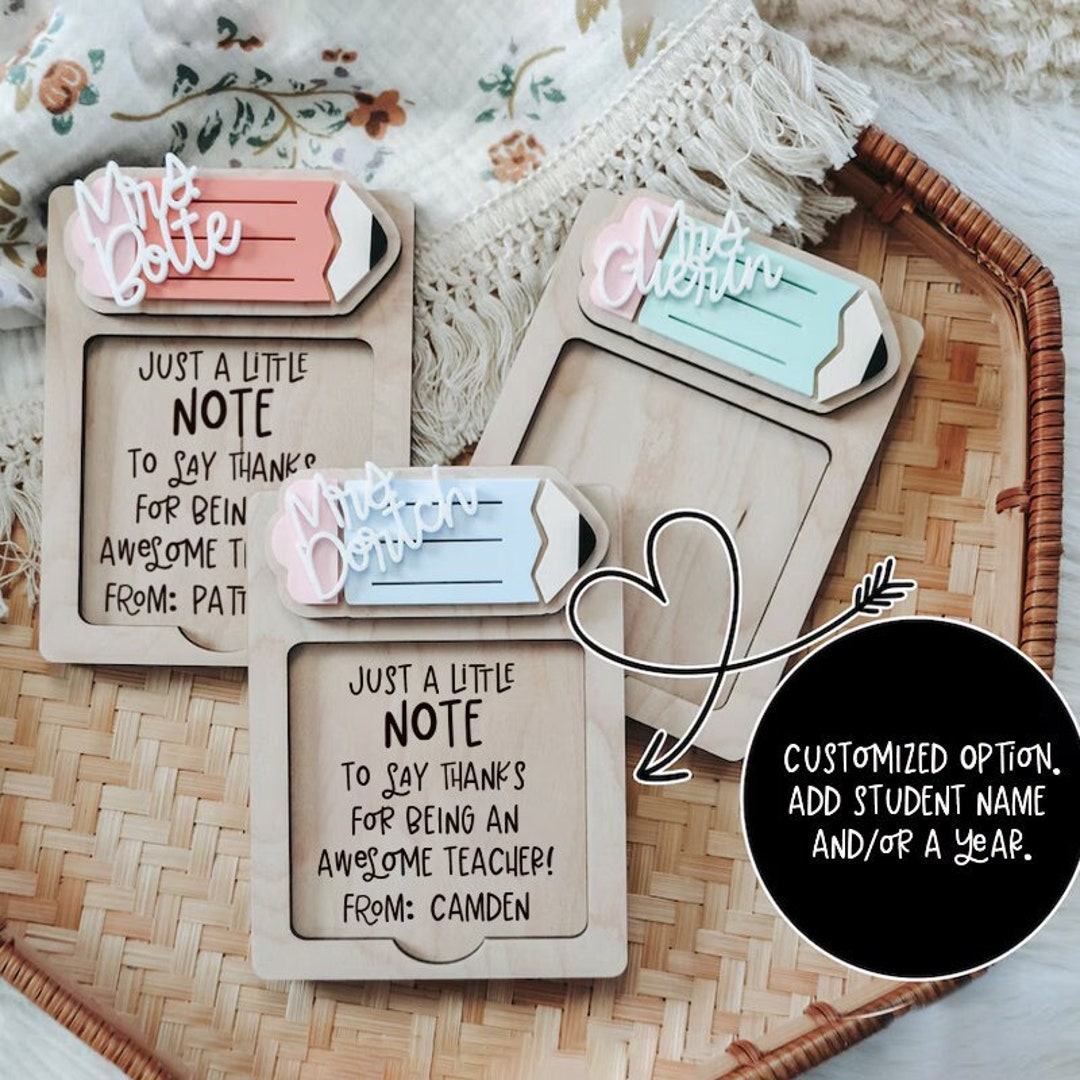 Mrs
Bolte
JUST A LITTLE
NOTE
TO SAY THANKS
FOR BEIN
AWESOME T
FROM: PATT
Mrs
Guerin
Mrs
Dortch
JUST A LITTLE
NOTE
TO SAY THANKS
FOR BEING AN
AWESOME TEACHER!
FROM: CAMDEN
CUSTOMIZED OPTION.
ADD STUDENT NAME
AND/OR A YEAR.